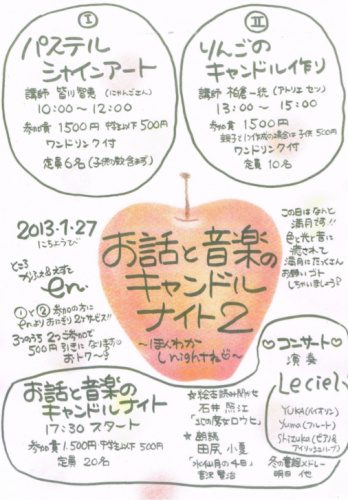 Ⅰ
パステル
シャインアート
講師 皆川智恵(にゃんごさん)
10:00〜12:00
参加費 1500円 中学生以下 500円
ワンドリンク付
定員6名(子供の数含まず)
Ⅱ
りんごの
キャンドル作り
13:00〜15:00
参加費 1500円
親子で1つ作成の場合は子供500円
ワンドリンク付
定員 10名
2013.1.27
にちようび
ところ
en.
お話と音楽の
キャンドル
ナイト2
〜ほんわか
この日はなんと
満月です!!
色と光と音に
癒されて
満月にたくさん
お願いゴト
しちゃいましょう♪
①と②参加の方に
enよりおにぎり2ケサービス!!
3つのうち2つ参加で
500円引きになりますので
おトク〜♪
お話と音楽の
キャンドルナイト
17:30 スタート
参加費 1,500円 中学生以下 500円
定員 20名
☆絵本読み聞かせ
石井 照江
「北の魔女ロウヒ」
☆朗読
田尻 小夏
「水仙月の4日」
宮沢賢治
♡コンサート♡
演奏
Leciel
YUKA(バイオリン)
Yuma(フルート)
Shizuka(ピアノ&
アイリッシュハープ)
冬の童謡メドレー
明日 他